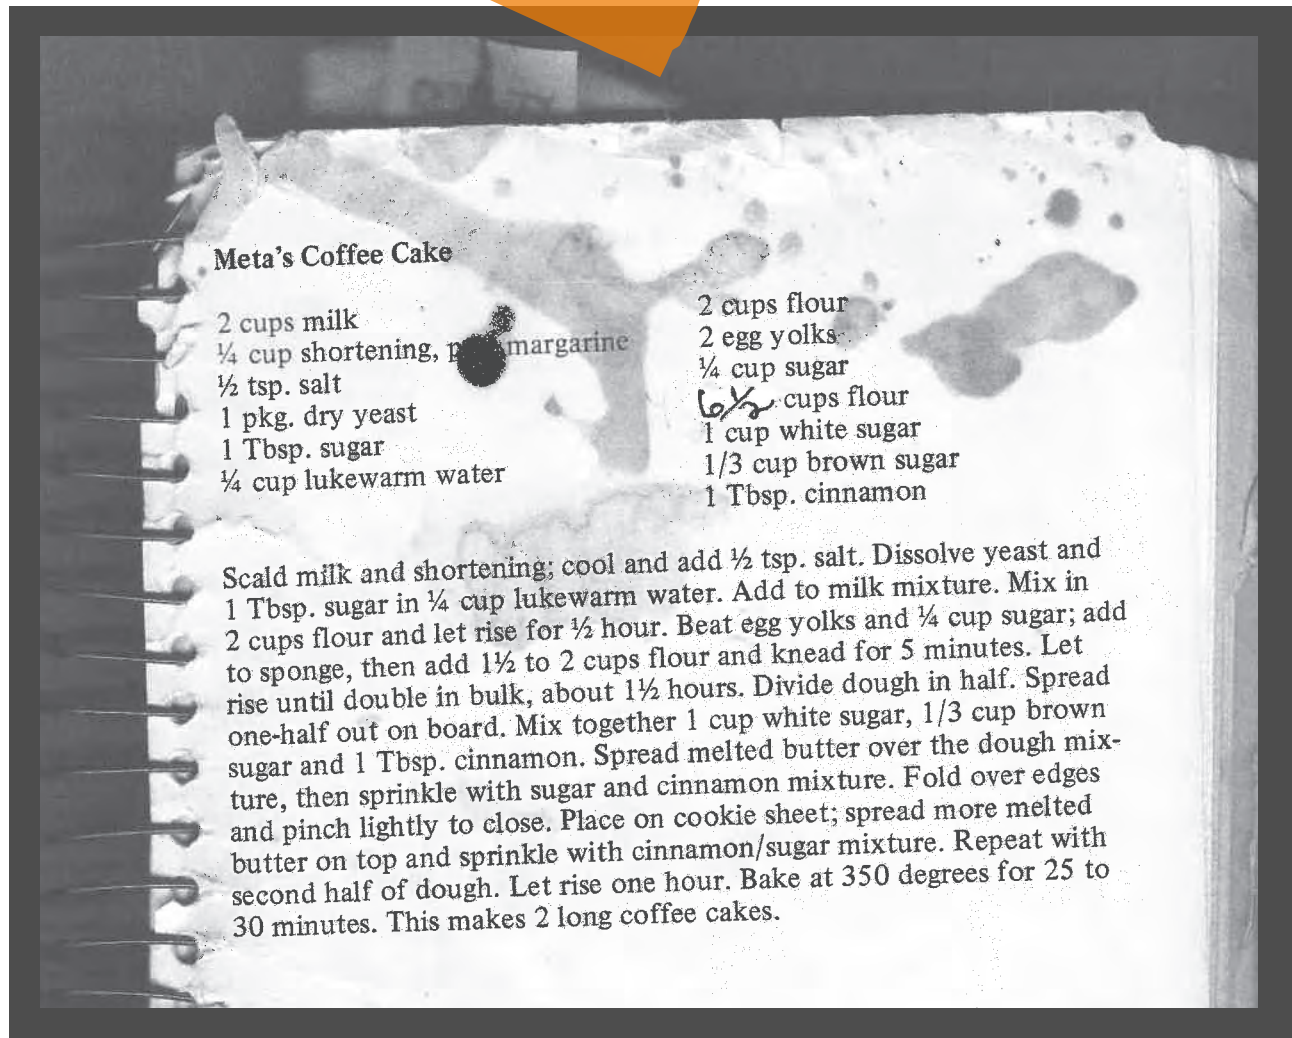 Meta's Coffee Cake
2 cups milk
¼ cup shortening, margarine
½ tsp. salt
1 pkg. dry yeast
1 Tbsp. sugar
¼ cup lukewarm water
2 cups flour
2 egg yolks
¼ cup sugar
6½ cups flour
1 cup white sugar
1/3 cup brown sugar
1 Tbsp. cinnamon
Scald milk and shortening; cool and add ½ tsp. salt. Dissolve yeast and
1 Tbsp. sugar in ¼ cup lukewarm water. Add to milk mixture. Mix in
2 cups flour and let rise for ½ hour. Beat egg yolks and ¼ cup sugar; add
to sponge, then add 1½ to 2 cups flour and knead for 5 minutes. Let
rise until double in bulk, about 1½ hours. Divide dough in half. Spread
one-half out on board. Mix together 1 cup white sugar, 1/3 cup brown
sugar and 1 Tbsp. cinnamon. Spread melted butter over the dough mix-
ture, then sprinkle with sugar and cinnamon mixture. Fold over edges
and pinch lightly to close. Place on cookie sheet; spread more melted
butter on top and sprinkle with cinnamon/sugar mixture. Repeat with
second half of dough. Let rise one hour. Bake at 350 degrees for 25 to
30 minutes. This makes 2 long coffee cakes.